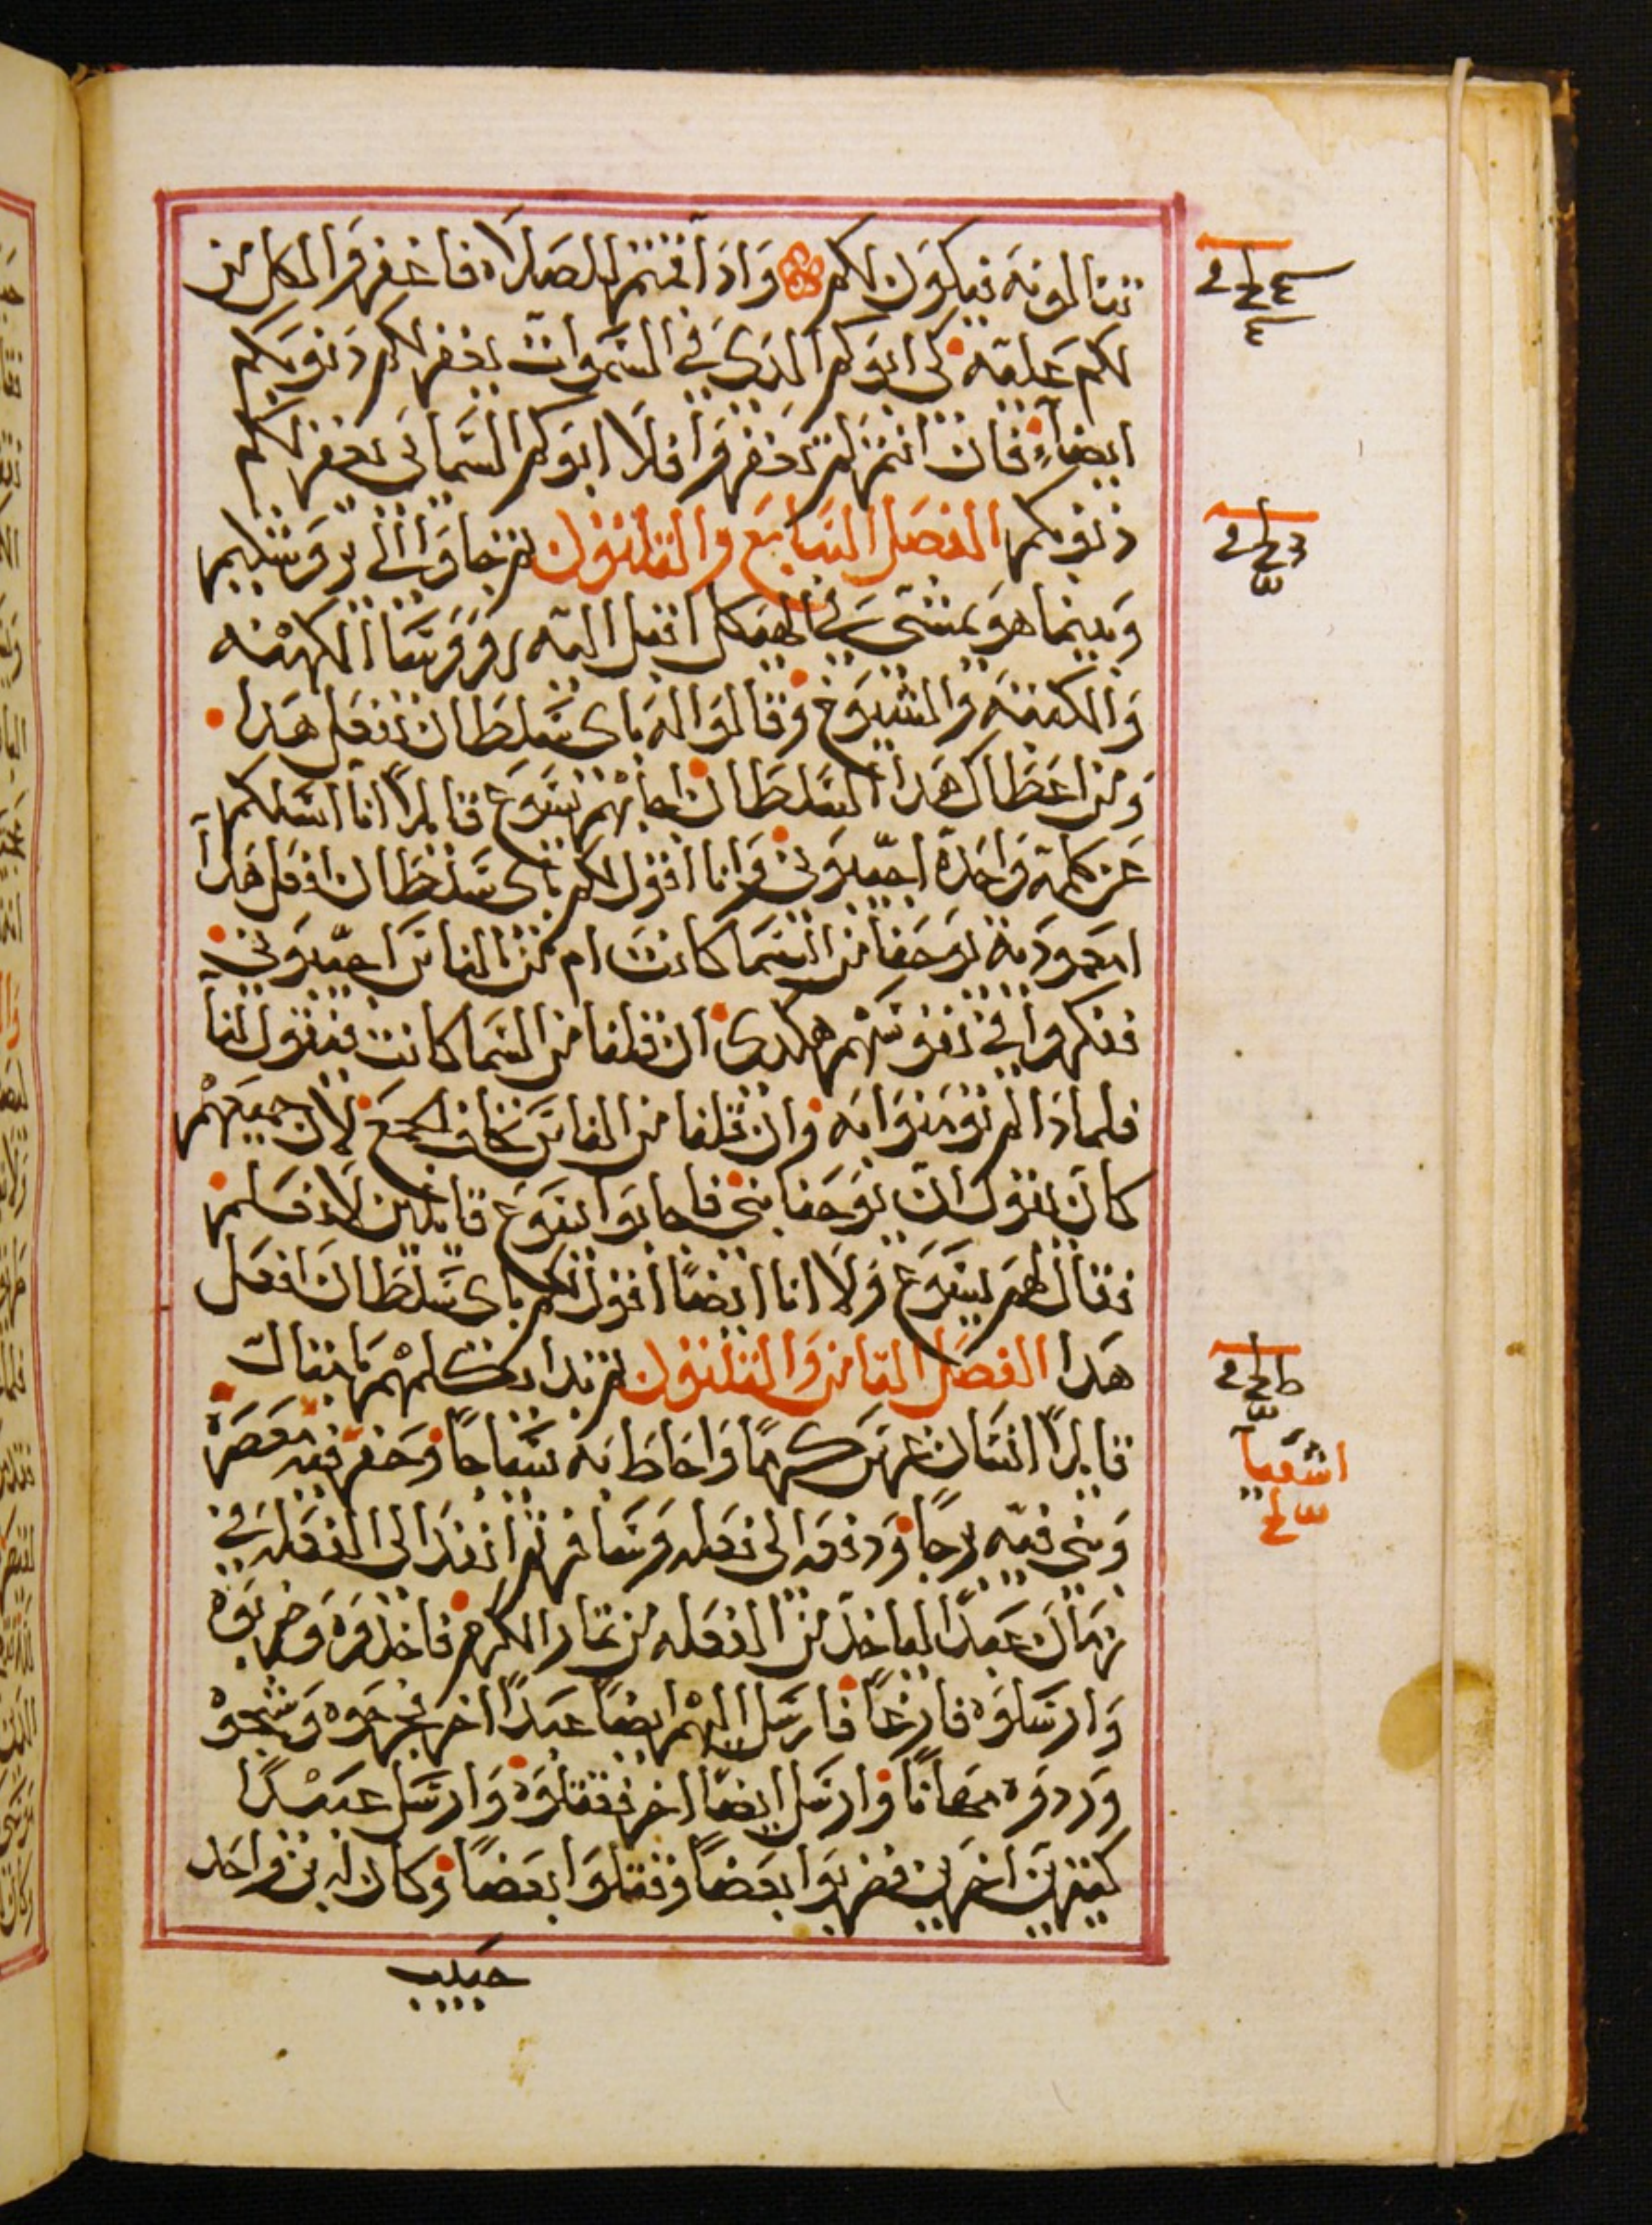 تنالونه فيكون لكم واذا قمتم للصلاة فاغفروا لكل من
لكم عليه كى ابوكم الذى فى السموات يغفر لكم ذنوبكم
ايضاً فان انتم لم تغفروا فلا ابوكم السمائى يغفر لكم
ذنوبكم الفصل السابع والثلثون ثم جاوا الى يروشليم
وبينما هو يمشى فى الهيكل اقبل اليه روو‌سا الكهنه
والكتبه والشيوخ وقالوا له باى سلطان تفعل هذا
ومن اعطاك هذا السلطان اجابهم يسوع قايلاً انا اسلكم
عن كلمة واحدة اجيبونى وانا اقول لكم باى سلطان افعل هذا
امعمودية يوحنا من السما كانت ام من الناس اجيبونى
ففكروا فى نفوسهم هكذى ان قلنا من السما كانت فيقول لنا
فلماذا لم تومنوا به وان قلنا من الناس نخاف الجمع لان جميعهم
كان يقول ان يوحنا نبى فاجابوا يسوع قايلين لا نعلم
فقال لهم يسوع ولا انا ايضاً اقول لكم باى سلطان افعل
هذا الفصل الثامن والثلثون ثم بدا يكلمهم بامثال
قايلاً انسان غرس كرمًا واحاط به سياجًا وحفر فيه معصرة
وبنى فيه برجًا ودفعه الى فعله وسافر ثم انفذ الى الفعله فى
زمان عبدًا لياخذ من الفعله من ثمار الكرم فاخذوه وضربوه
وارسلوه فارغًا فارسل اليهم ايضًا عبدًا اخر فجرحوه وشجوه
وردوه مهانًا وارسل ايضًا اخر فقتلوه وارسل عبيدًا
كثيرين اخرين فضربوا بعضًا وقتلوا بعضًا وكان له بن واحد
حبيب
اشعيا